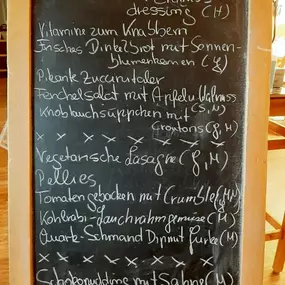 dressing (H)
Vitamine zum Knabbern
Frisches Dinkelbrot mit Sonnen-
blumenkernen (G)
Pikante Zuccunitaler
Fenchelsalat mit Apfel u Walnuss
Knoblauchsüppchen mit (S, M)
Croutons (G, M)
x x x x x x x x x
Vegetarische Lasagne (G, M)
Pellies
Tomaten gebacken mit Crumble (G, M)
Kohlrabi-Lauchrahmgemüse (M)
Quark-Schmand Dip mit Gurke (M)
x x x x x x x
Schokopudding mit Sahne (M)